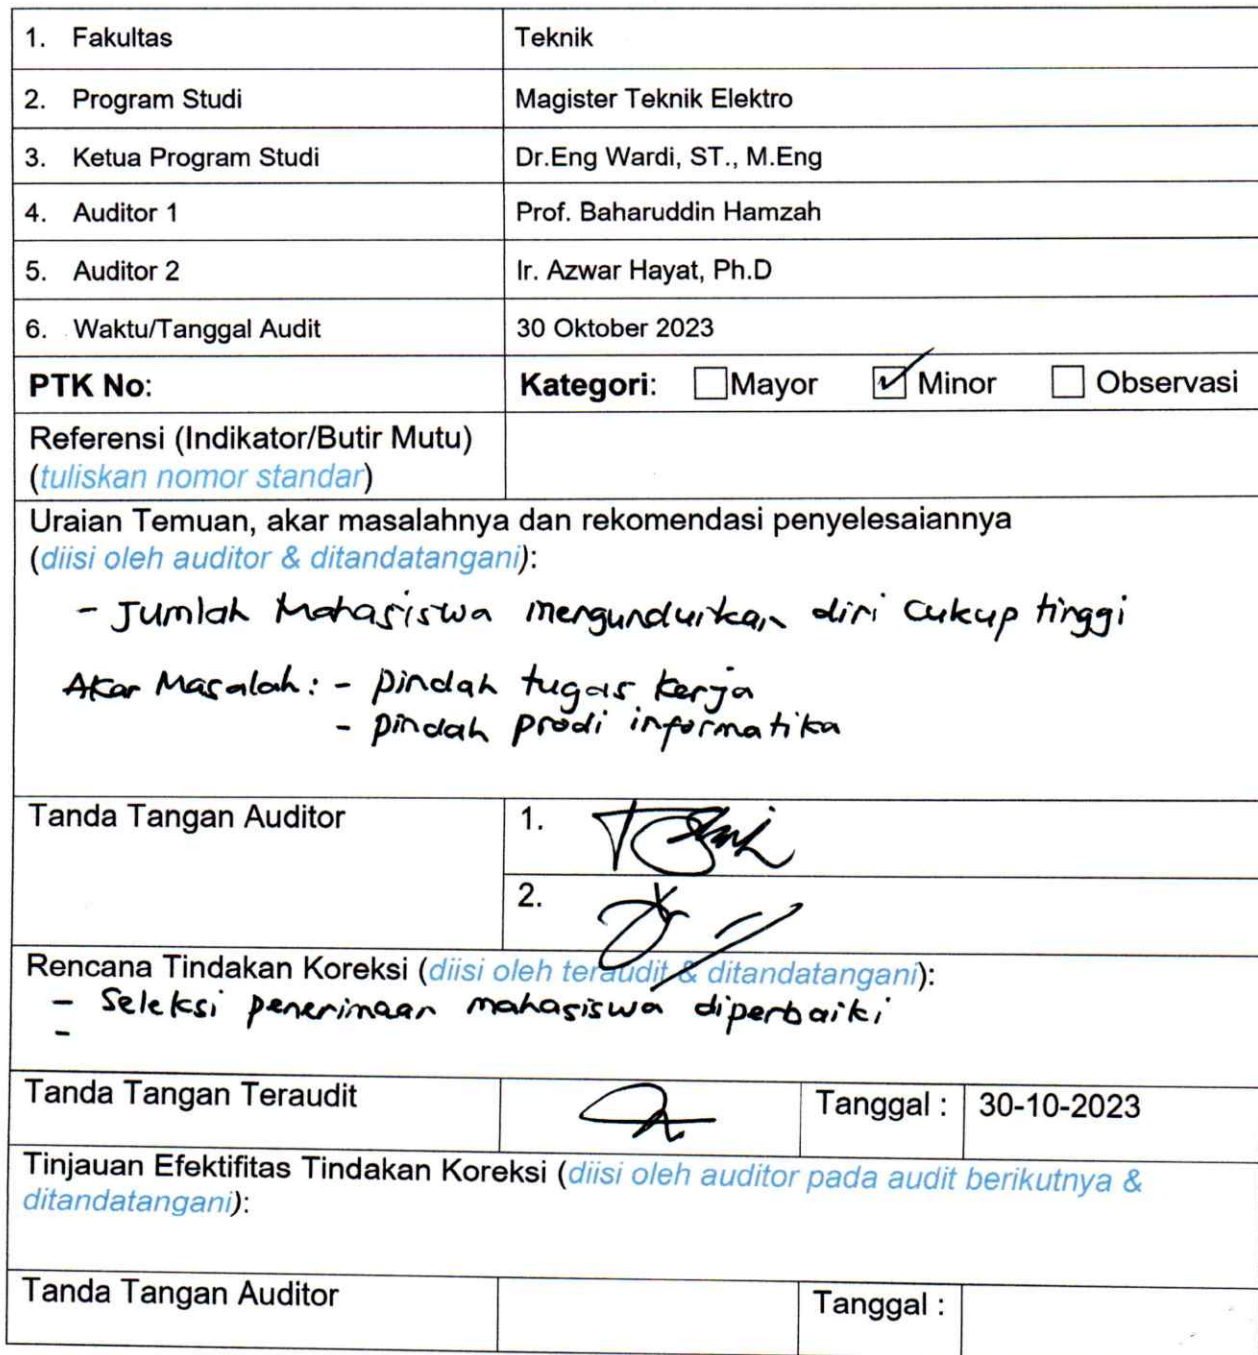 1. Fakultas Teknik
2. Program Studi Magister Teknik Elektro
3. Ketua Program Studi Dr.Eng Wardi, ST., M.Eng
4. Auditor 1 Prof. Baharuddin Hamzah
5. Auditor 2 Ir. Azwar Hayat, Ph.D
6. Waktu/Tanggal Audit 30 Oktober 2023
PTK No: Kategori: Mayor Minor Observasi
Referensi (Indikator/Butir Mutu)
(tuliskan nomor standar)
Uraian Temuan, akar masalahnya dan rekomendasi penyelesaiannya
(diisi oleh auditor & ditandatangani):
- Jumlah Mahasiswa mengundurkan diri cukup tinggi
Akar Masalah: - pindah tugas kerja
- pindah prodi informatika
Tanda Tangan Auditor 1.
2.
Rencana Tindakan Koreksi (diisi oleh teraudit & ditandatangani):
- Seleksi penerimaan mahasiswa diperbaiki
-
Tanda Tangan Teraudit Tanggal : 30-10-2023
Tinjauan Efektifitas Tindakan Koreksi (diisi oleh auditor pada audit berikutnya &
ditandatangani):
Tanda Tangan Auditor Tanggal :